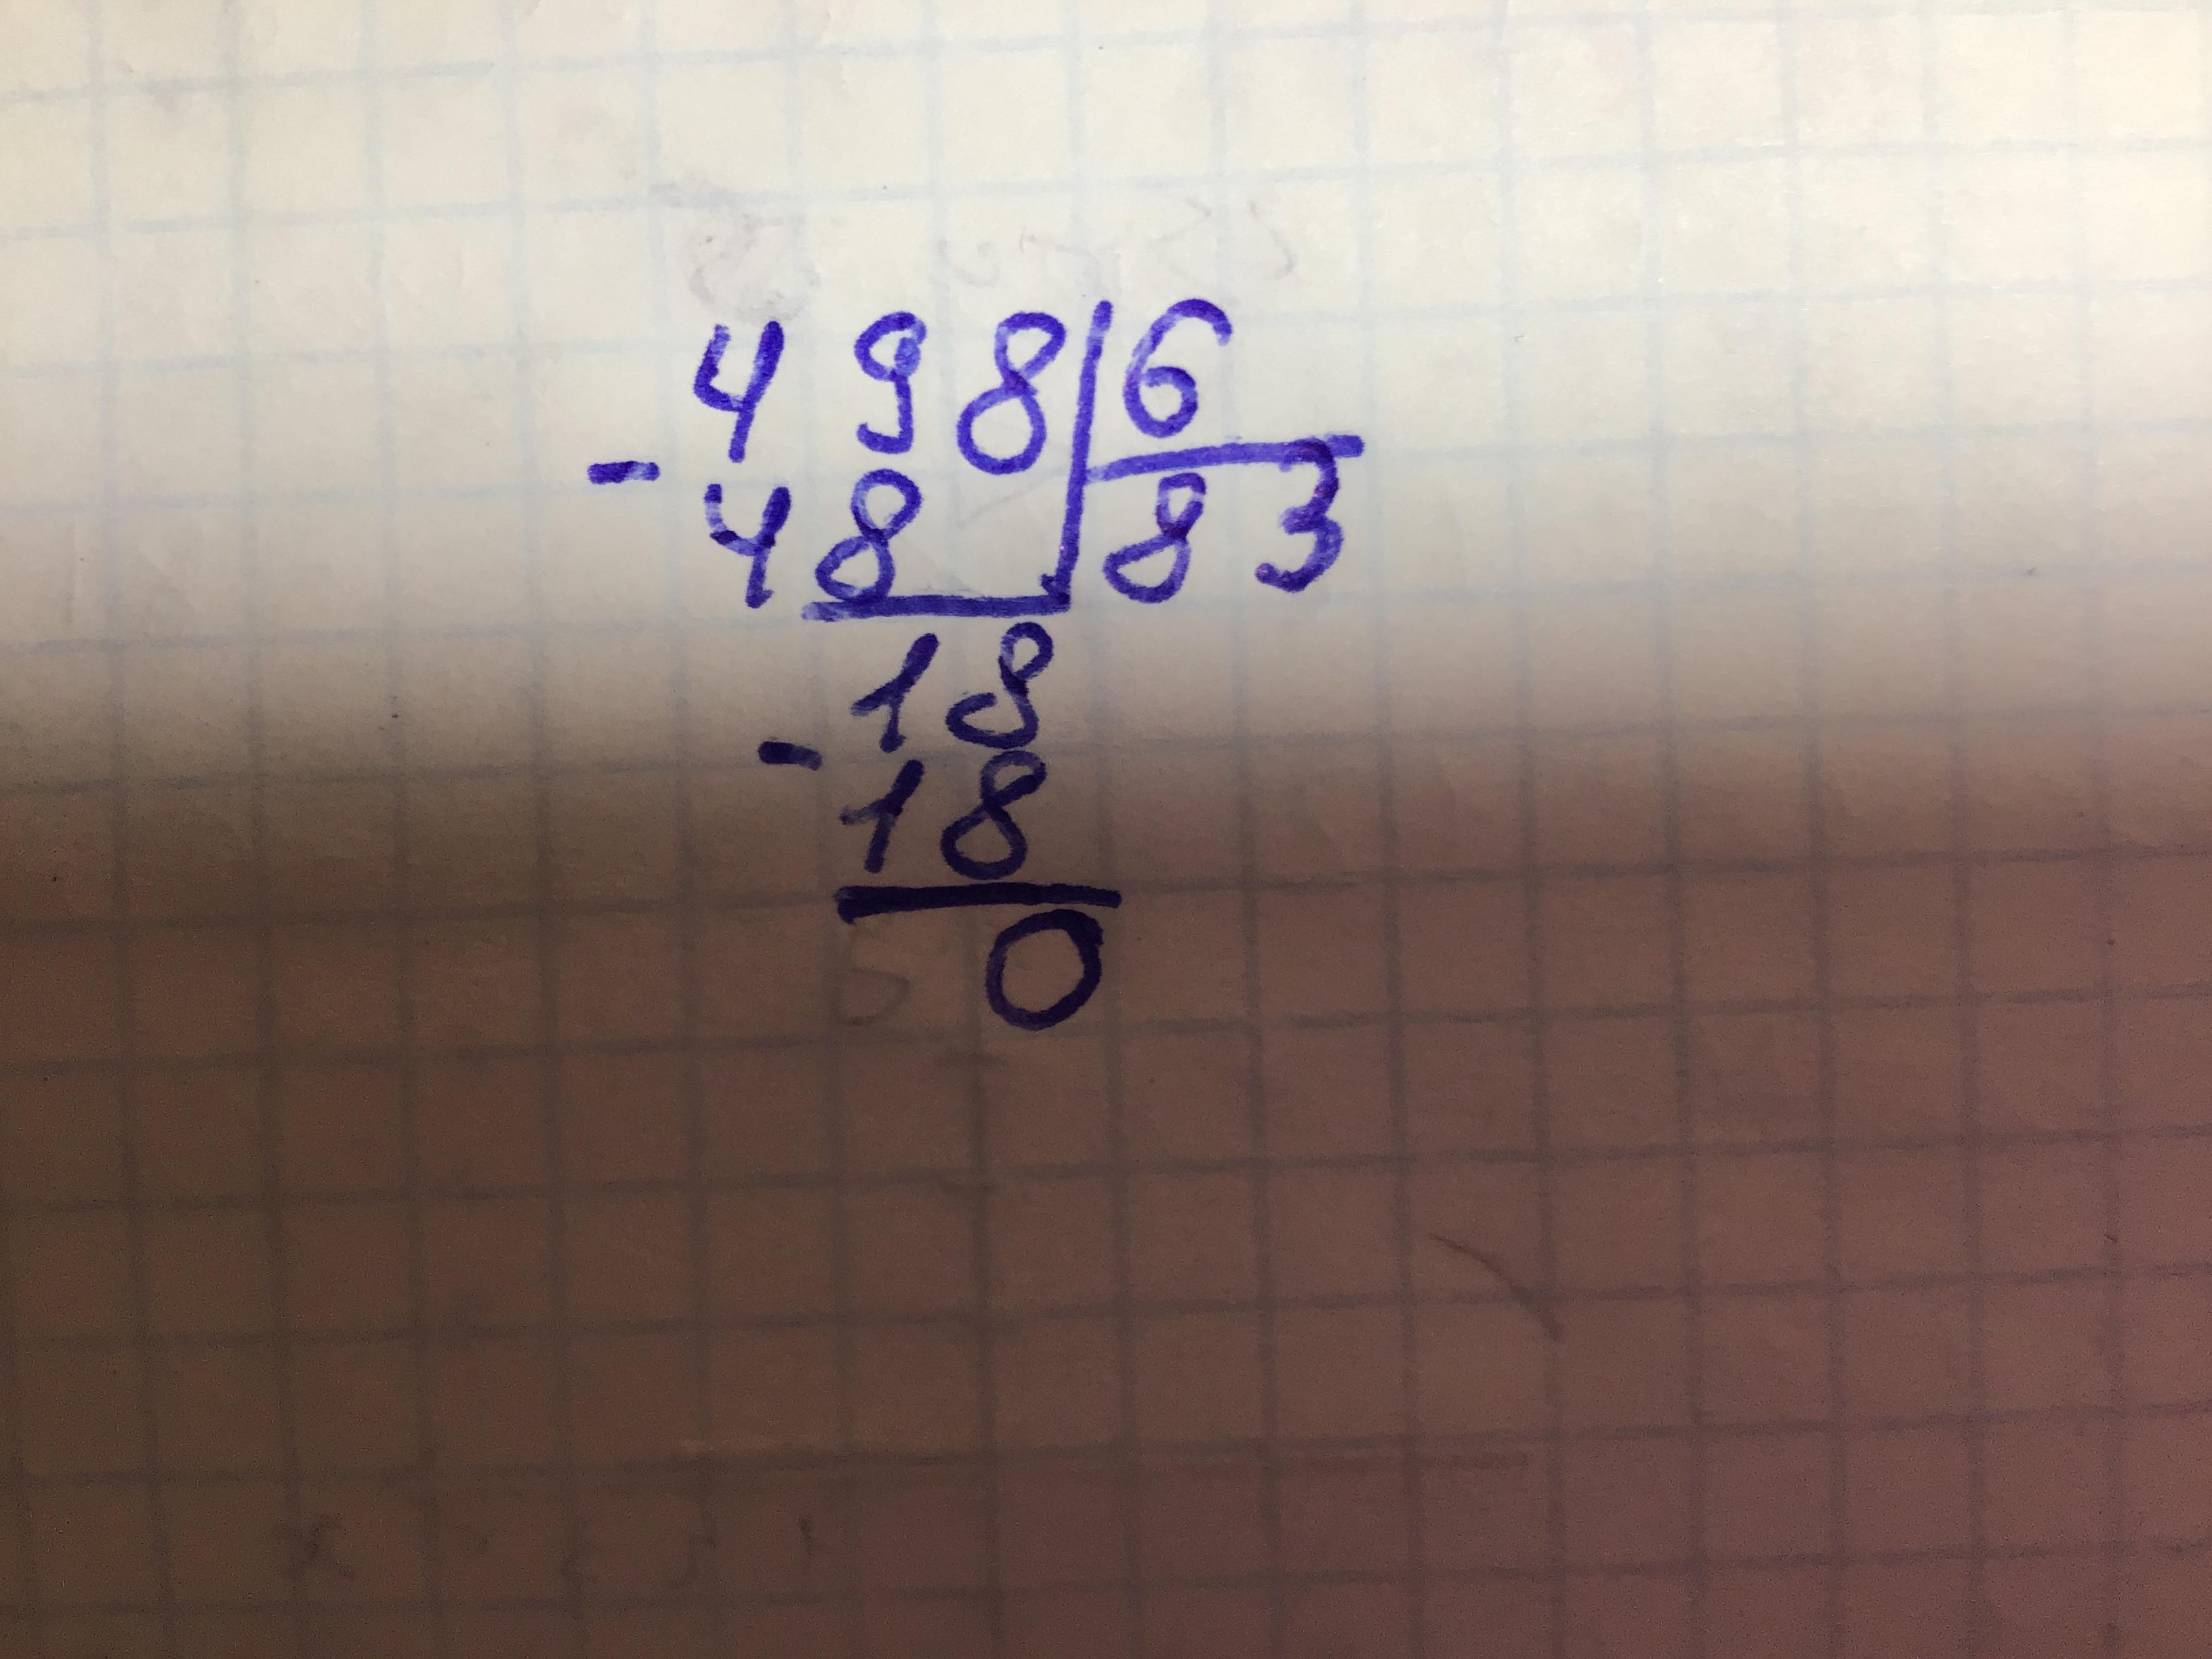 498 6
- 48 83
18
- 18
0